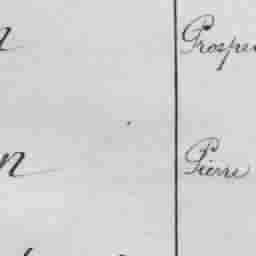 n Prosper
n Pierre